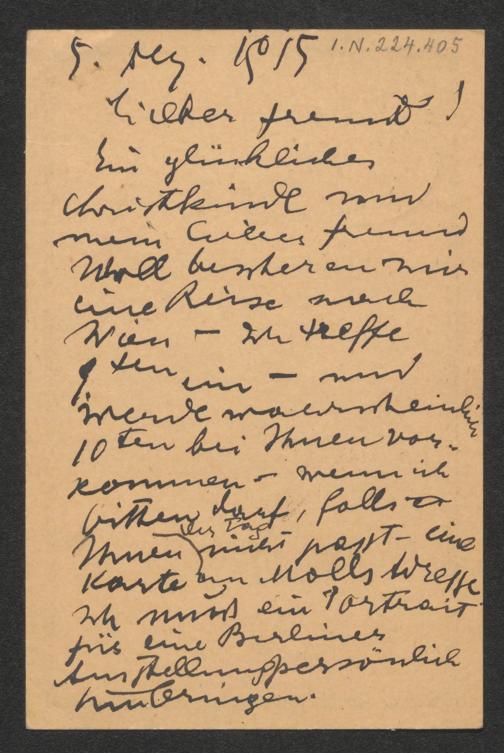 5. Dez. 1915 I.N.224.405
Lieber Freund!
Ein glückliches
Christkindl und
mein lieber Freund
Moll bescheren mir
eine Reise nach
Wien – Ich treffe
9ten ein – und
werde warscheinlich
10ten bei Ihnen vor-
kommen – wenn ich
bitten darf, falls
der Tag
Ihnen nicht passt – eine
Karte an Molls Adresse
Ich muß ein Portrait
für eine Berliner
Ausstellung persönlich
hinbringen.